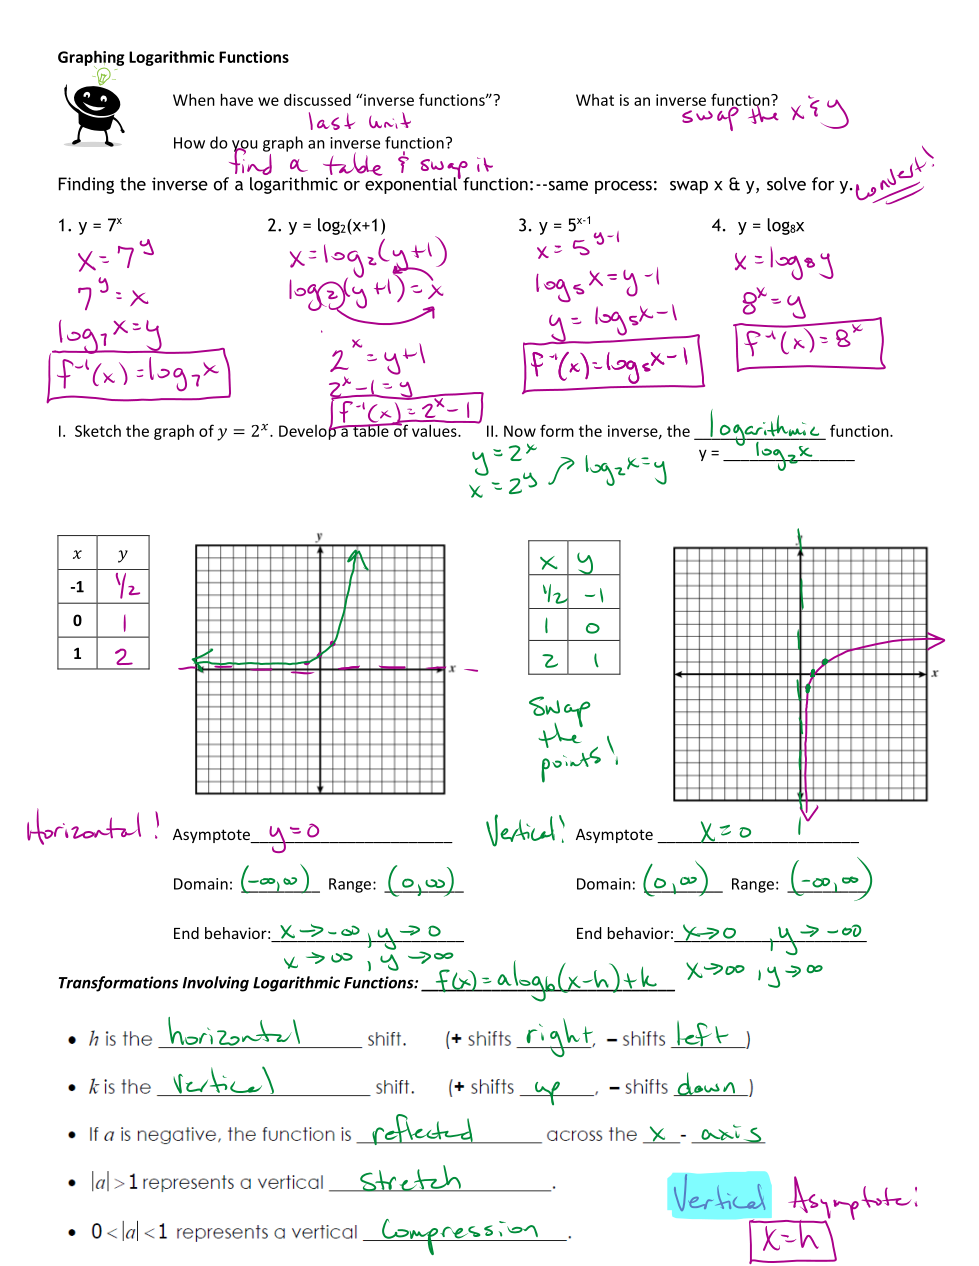 Graphing Logarithmic Functions
When have we discussed “inverse functions”? What is an inverse function?
last unit swap the x & y
How do you graph an inverse function?
find a table & swap it
Finding the inverse of a logarithmic or exponential function:--same process: swap x & y, solve for y. convert!
1. y = 7ˣ 2. y = log₂(x+1) 3. y = 5ˣ⁻¹ 4. y = log₈x
x = 7ʸ x = log₂(y+1) x = 5ʸ⁻¹ x = log₈y
7ʸ = x log₂(y+1) = x log₅x = y-1 8ˣ = y
log₇x = y 2ˣ = y+1 y = log₅x-1 f⁻¹(x) = 8ˣ
f⁻¹(x) = log₇x 2ˣ-1 = y f⁻¹(x) = log₅x-1
f⁻¹(x) = 2ˣ-1
I. Sketch the graph of y = 2ˣ. Develop a table of values. II. Now form the inverse, the logarithmic function.
y = 2ˣ log₂x = y y = log₂x
x = 2ʸ
x y
-1 1/2
0 1
1 2
y
x
x y
1/2 -1
1 0
2 1
Swap
the
points!
y
x
Horizontal! Asymptote y = 0 Vertical! Asymptote x = 0
Domain: (-∞,∞) Range: (0,∞) Domain: (0,∞) Range: (-∞,∞)
End behavior: x → -∞, y → 0 End behavior: x → 0, y → -∞
x → ∞, y → ∞ x → ∞, y → ∞
Transformations Involving Logarithmic Functions: f(x) = a log_b(x-h)+k
• h is the horizontal shift. (+ shifts right, – shifts left)
• k is the vertical shift. (+ shifts up, – shifts down)
• If a is negative, the function is reflected across the x - axis
• |a| > 1 represents a vertical stretch.
• 0 < |a| < 1 represents a vertical compression.
Vertical Asymptote:
x = h